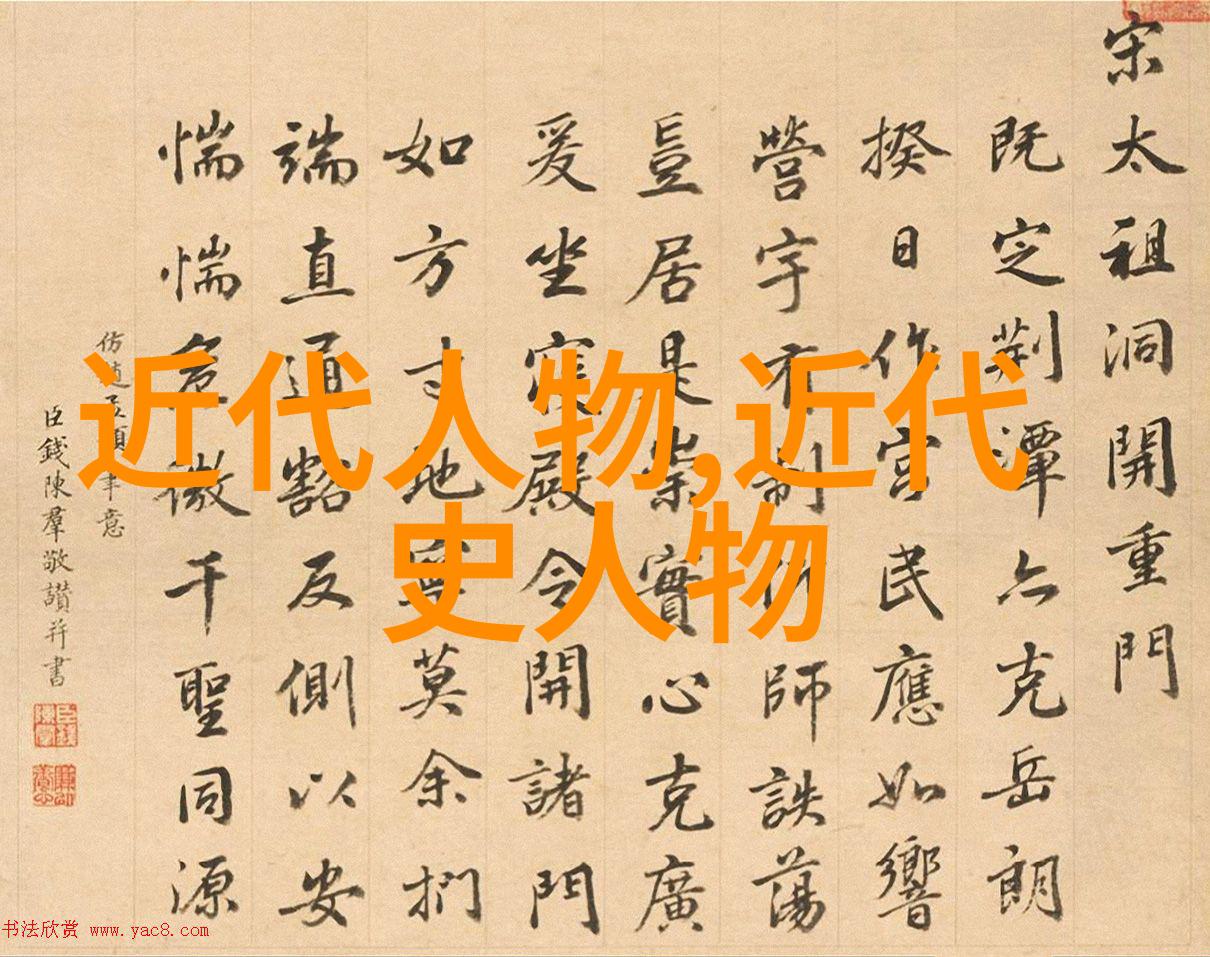 近代人物,近代
史人物
宋太祖洞開重門
既定荆潭亦克岳朗
揆日作宫民應如響
營宇有制師詄蕩
豈居是崇實心克廣
爰坐寢殿令開諸門
如方寸地莫余捫
端直通豁反側以安
惴惴危微千聖同源
仿趙孟頫筆意
臣錢陳羣敬讃并書
书法欣赏 www.yac8.com